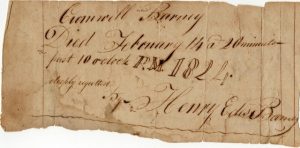 Cromwell Barney
Died February 14 a 20 minutes
past 10 o'clock P.M 1824.
deeply regretted.
Henry Barney